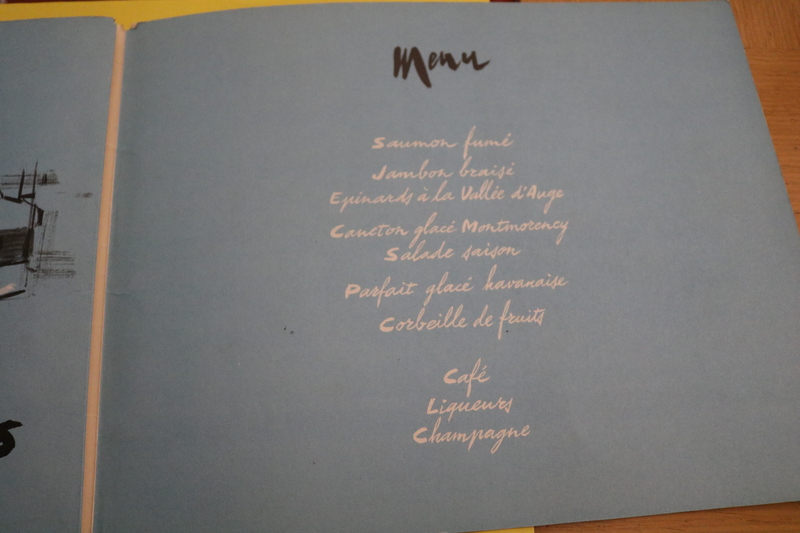 Menu
Saumon fumé
Jambon braisé
Epinards à la Vallée d'Auge
Caneton glacé Montmorency
Salade saison
Parfait glacé havanaise
Corbeille de fruits
Café
Liqueurs
Champagne